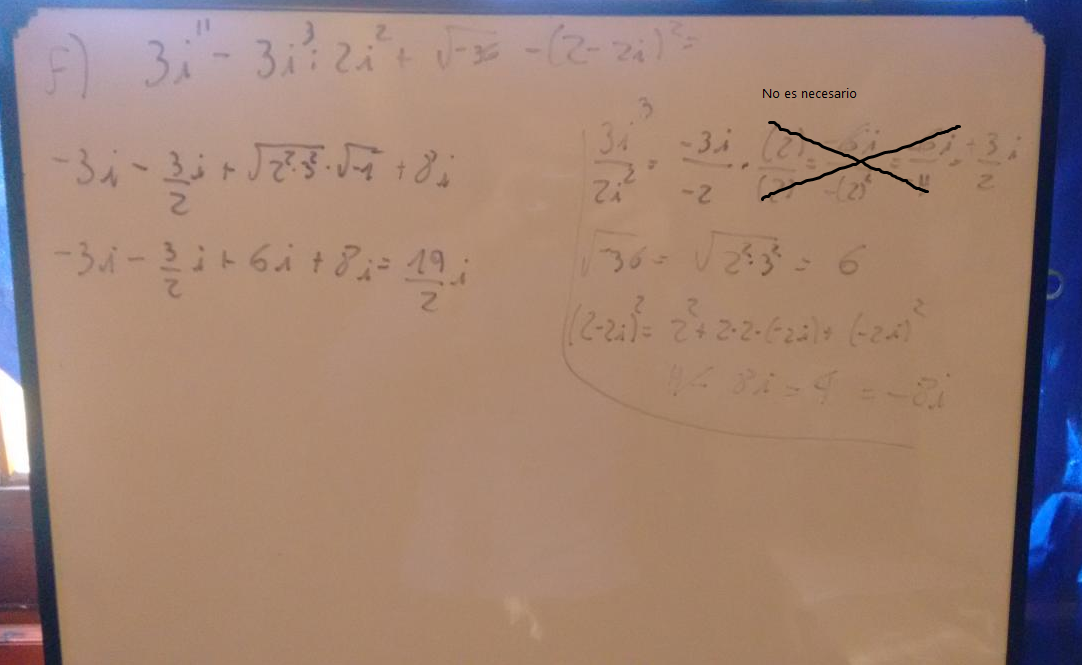 F) 3i¹¹ - 3i³ : 2i² + √-36 - (2-2i)² =
No es necesario
-3i - 3/2 i + √2²·3² · √-1 + 8i
-3i - 3/2 i + 6i + 8i = 19/2 i
3i³/2i² = -3i/-2 · (2)/(2) = 6i/-(2)² = = +3/2 i
√-36 = √2²·3² = 6
(2-2i)² = 2² + 2·2·(-2i) + (-2i)²
4 - 8i - 4 = -8i